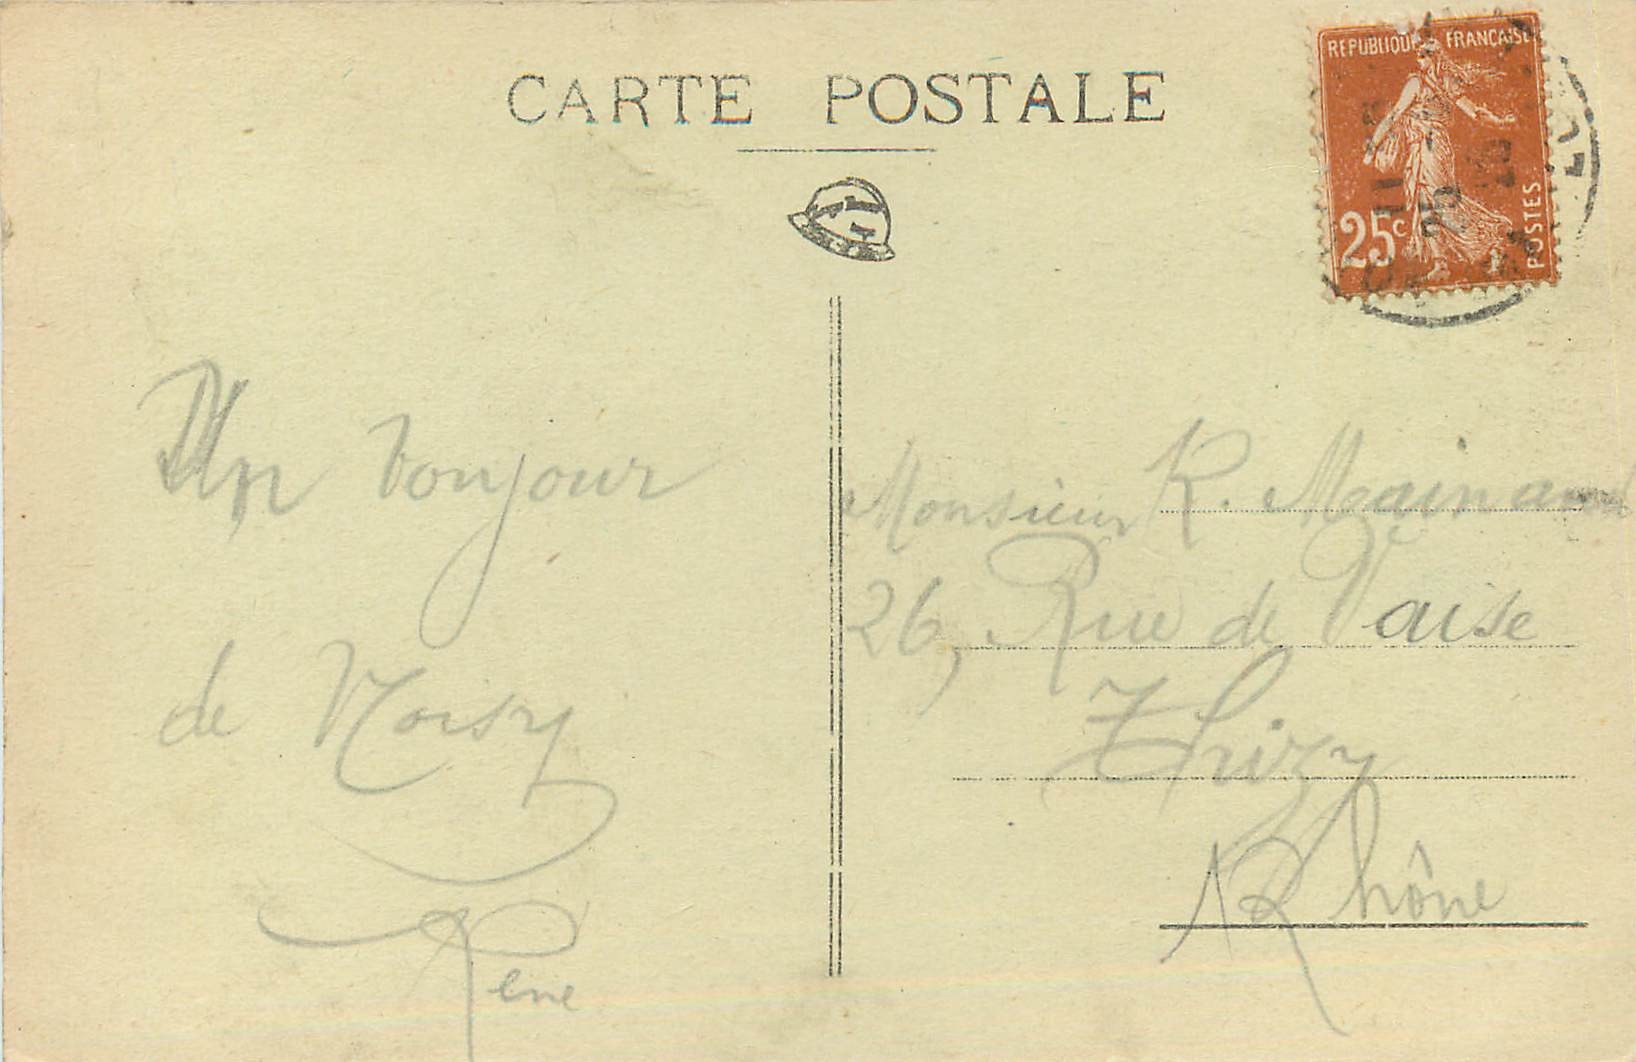 CARTE POSTALE
REPUBLIQUE FRANÇAISE
25c
POSTES
Un bonjour
de Noisy
René
Monsieur R. Mainand
26, Rue de Vaise
Thizy
Rhône